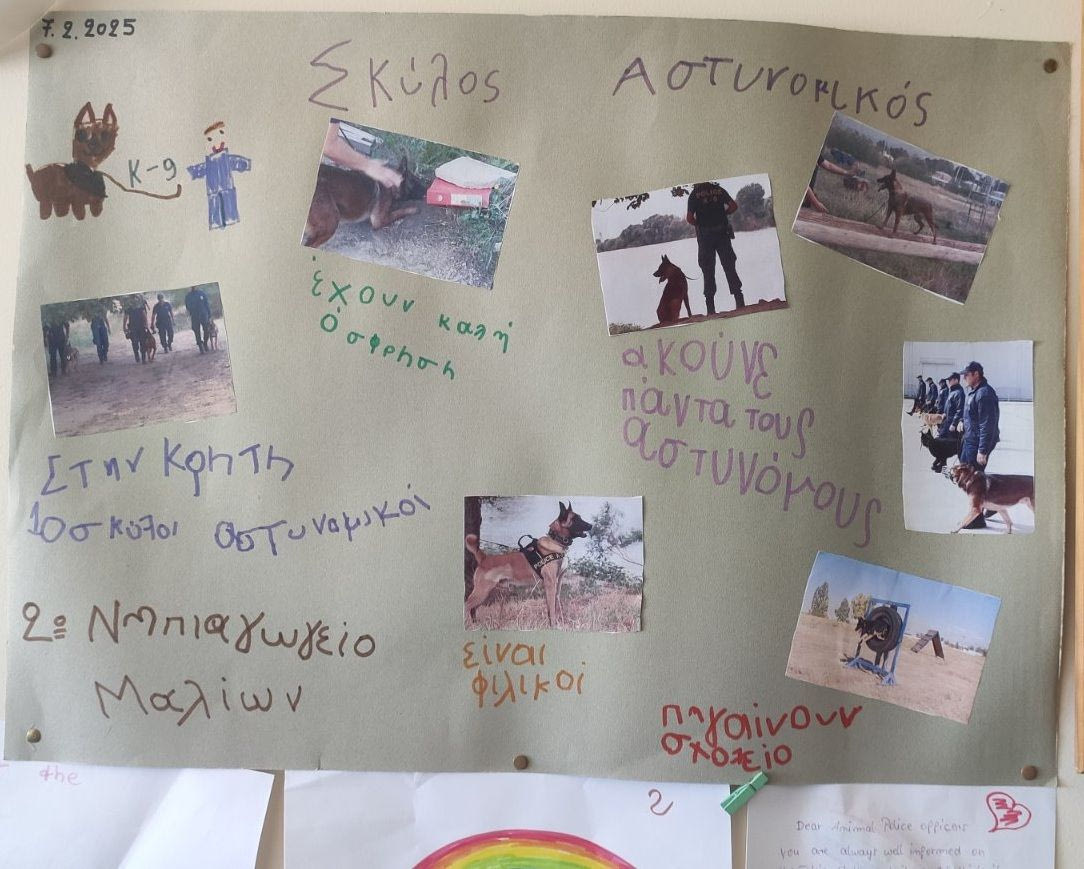 7.2.2025
Σκύλος Αστυνομικός
K-9
έχουν καλή
όσφρηση
ακούνε
πάντα τους
αστυνόμους
Στην Κρήτη
10 σκύλοι αστυνομικοί
2º Νηπιαγωγείο
Μαλίων
POLICE
είναι
φιλικοί
πηγαίνουν
σχολείο
the
2
Dear Animal Police officers
you are always well informed on